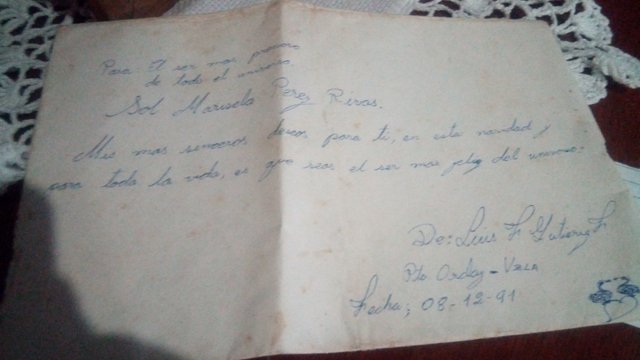 Para: El ser mas precioso
de todo el universo.
Sol Marisela Perez Rivas.
Mis mas sinceros deseos para ti, en esta navidad y
para toda la vida, es que seas el ser mas feliz del universo.
De: Luis F Gutierrez F
Pto Ordaz - Vzla
Fecha; 08-12-91